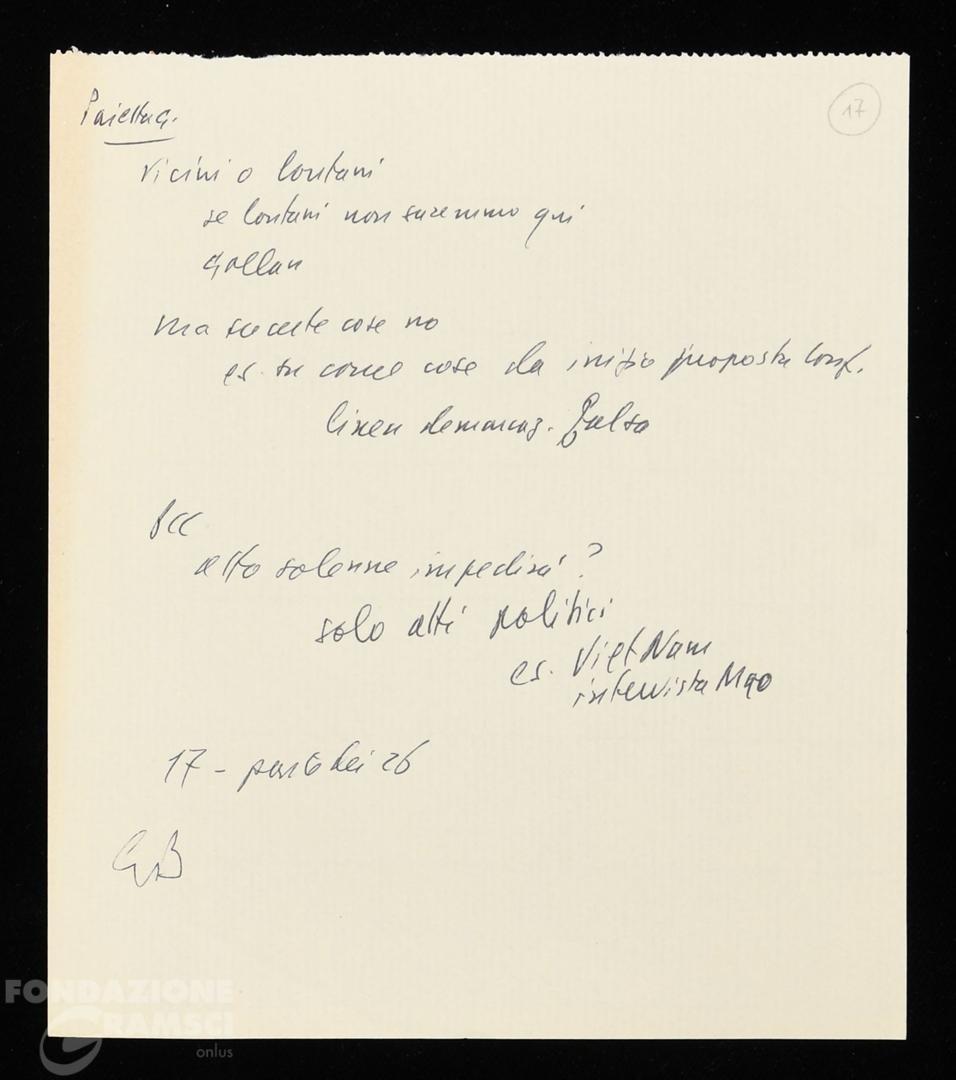 Paietta G.
17
vicini o lontani
se lontani non saremmo qui
Gollan
ma su certe cose no
es. su come cose da inizio proposta conf.
linea demarcaz. falsa
PCC
atto solenne impedirà?
solo atti politici
es. Viet Nam
intervista Mao
17 - punto dei 26
GB
FONDAZIONE
GRAMSCI
onlus